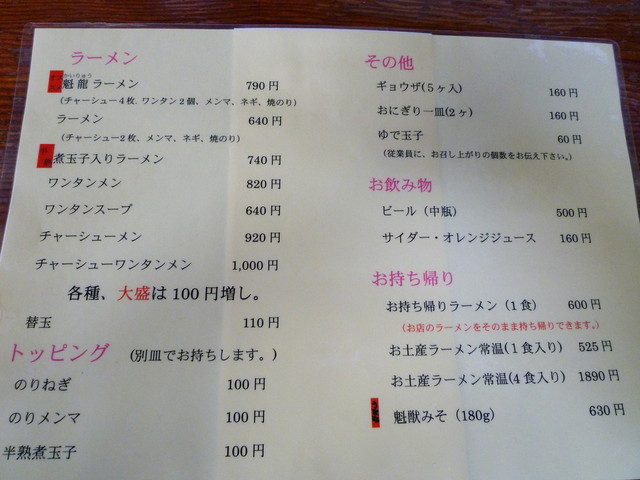 ラーメン
かいりゅう
魁龍ラーメン 790円
(チャーシュー4枚、ワンタン2個、メンマ、ネギ、焼のり)
ラーメン 640円
(チャーシュー2枚、メンマ、ネギ、焼のり)
煮玉子入りラーメン 740円
ワンタンメン 820円
ワンタンスープ 640円
チャーシューメン 920円
チャーシューワンタンメン 1,000円
各種、大盛は100円増し。
替玉 110円
トッピング (別皿でお持ちします。)
のりねぎ 100円
のりメンマ 100円
半熟煮玉子 100円
その他
ギョウザ(5ヶ入) 160円
おにぎり一皿(2ヶ) 160円
ゆで玉子 60円
(従業員に、お召し上がりの個数をお伝え下さい。)
お飲み物
ビール(中瓶) 500円
サイダー・オレンジジュース 160円
お持ち帰り
お持ち帰りラーメン(1食) 600円
(お店のラーメンをそのまま持ち帰りできます。)
お土産ラーメン常温(1食入り) 525円
お土産ラーメン常温(4食入り) 1890円
魁獣みそ(180g) 630円